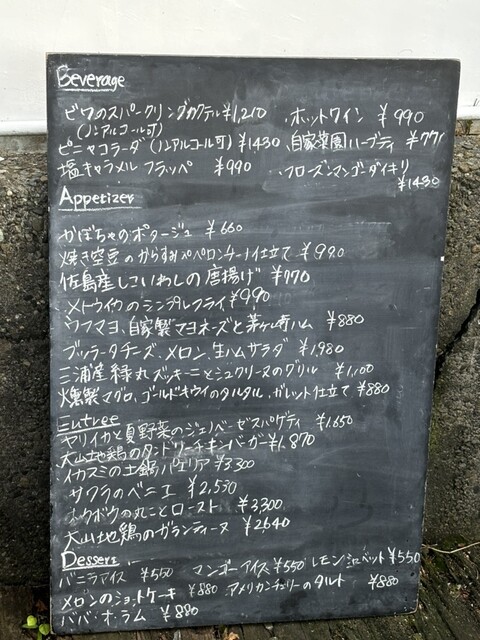 Beverage
ビワのスパークリングカクテル ¥1,210 ・ホットワイン ¥990
(ノンアルコール可)
ピニャコラーダ(ノンアルコール可) ¥1430 ・自家菜園ハーブティ ¥77
塩キャラメル フラッペ ¥990 ・フローズンマンゴーダイキリ
¥1430
Appetizer
かぼちゃのポタージュ ¥660
焼き空豆のからすみペペロンチーノ仕立て ¥990
佐島産しこいわしの唐揚げ ¥770
メトウイカのシンプルフライ ¥990
ウフマヨ、自家製マヨネーズと茅ヶ崎ハム ¥880
ブッラータチーズ、メロン、生ハムサラダ ¥1,980
三浦産緑丸ズッキーニとシュクリーヌのグリル ¥1,100
燻製マグロ、ゴールドキウイのタルタル、ガレット仕立て ¥880
Entree
ヤリイカと夏野菜のジェノベーゼスパゲティ ¥1,650
大山地鶏のタンドリーチキンバーガー ¥1,870
イカスミの土鍋パエリア ¥3,300
サワラのベニエ ¥2,530
ホウボウの丸ごとロースト ¥3,300
大山地鶏のガランティーヌ ¥2,640
Dessert
バニラアイス ¥550 マンゴーアイス ¥550 レモンシャーベット ¥550
メロンのショートケーキ ¥880 アメリカンチェリーのタルト ¥880
ババ・オ・ラム ¥880